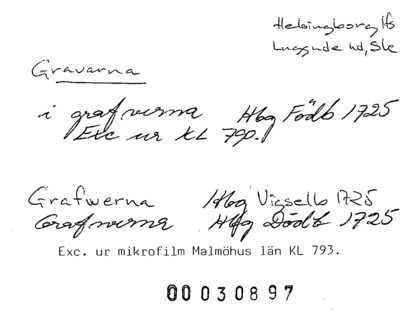 Helsingborg lfs
Luggude hd, Sk
Gravarna
i grafverna Hbg Födb 1725
Exc ur KL 790.
Grafwerna Hbg Vigselb 1725
Grafverna Hbg Dödb 1725
Exc. ur mikrofilm Malmöhus län KL 793.
00030897